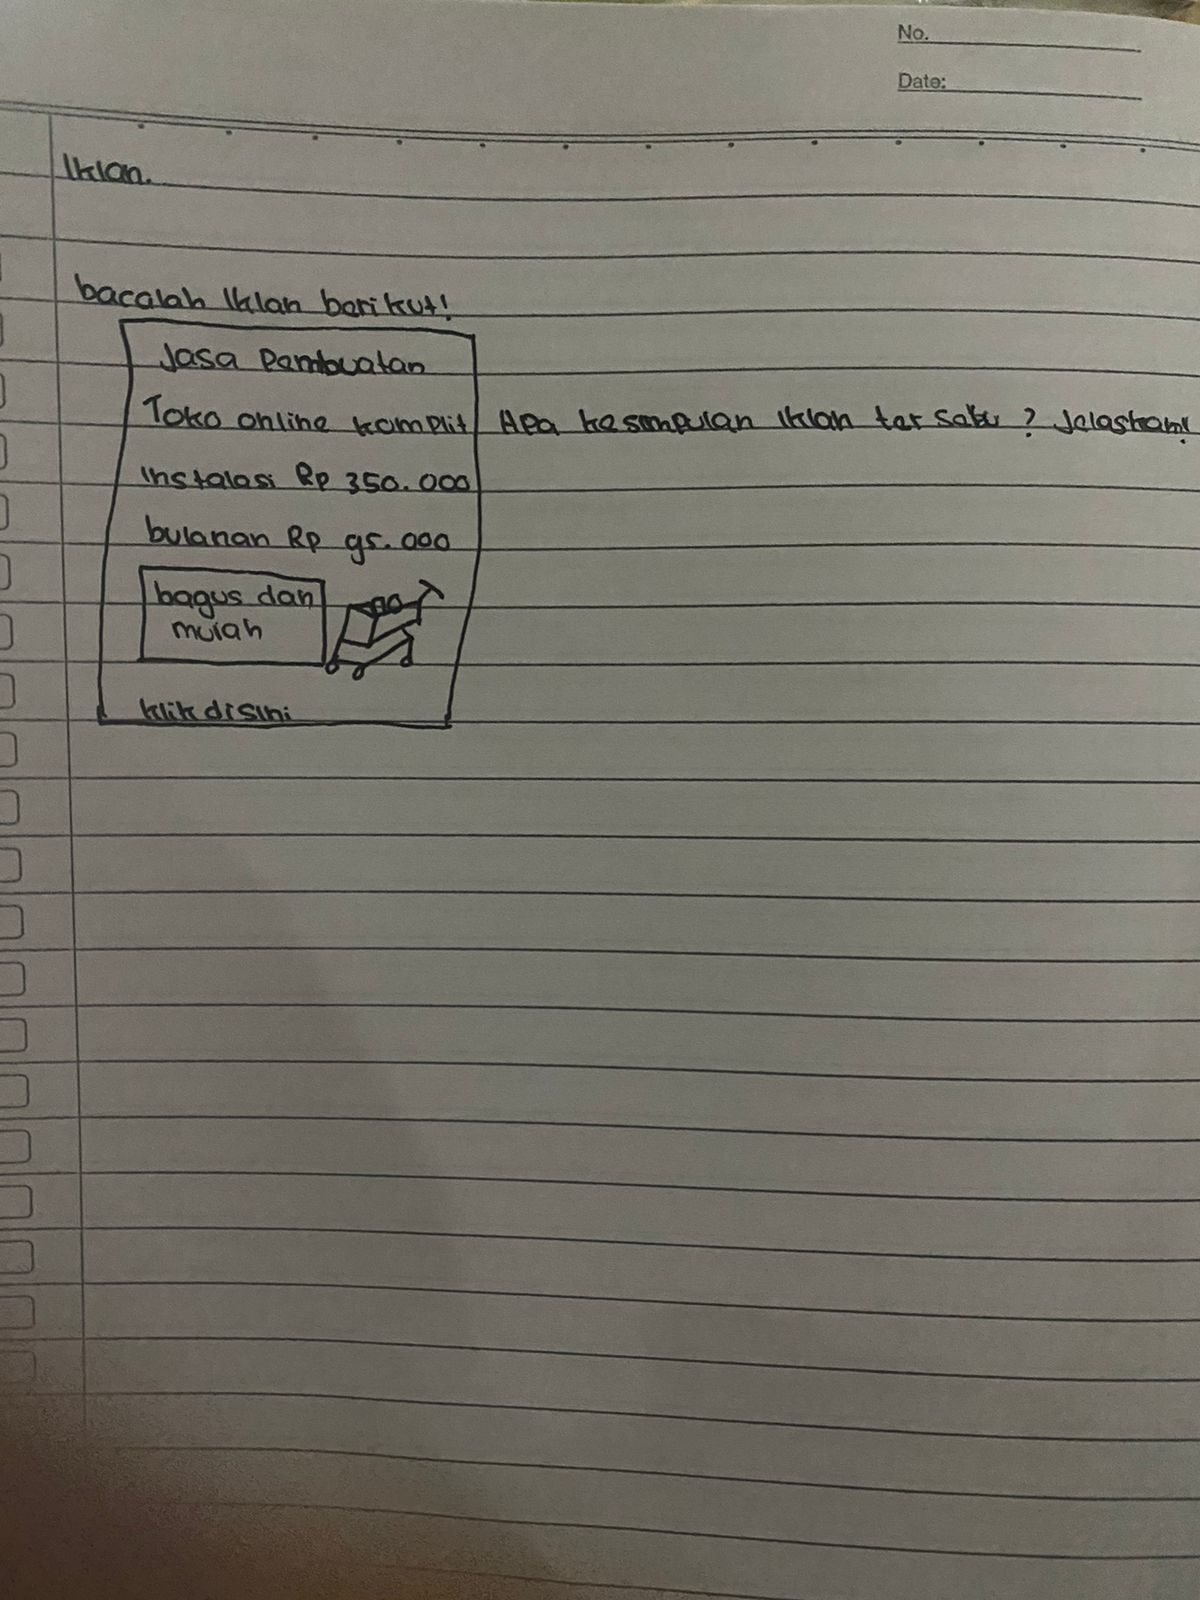 No.
Date:
Iklan.
bacalah Iklan berikut!
Jasa Pembuatan
Toko online komplit
Instalasi Rp 350.000
bulanan Rp 95.000
bagus dan
murah
klik disini
Apa kesimpulan Iklan tersebut? Jelaskan!